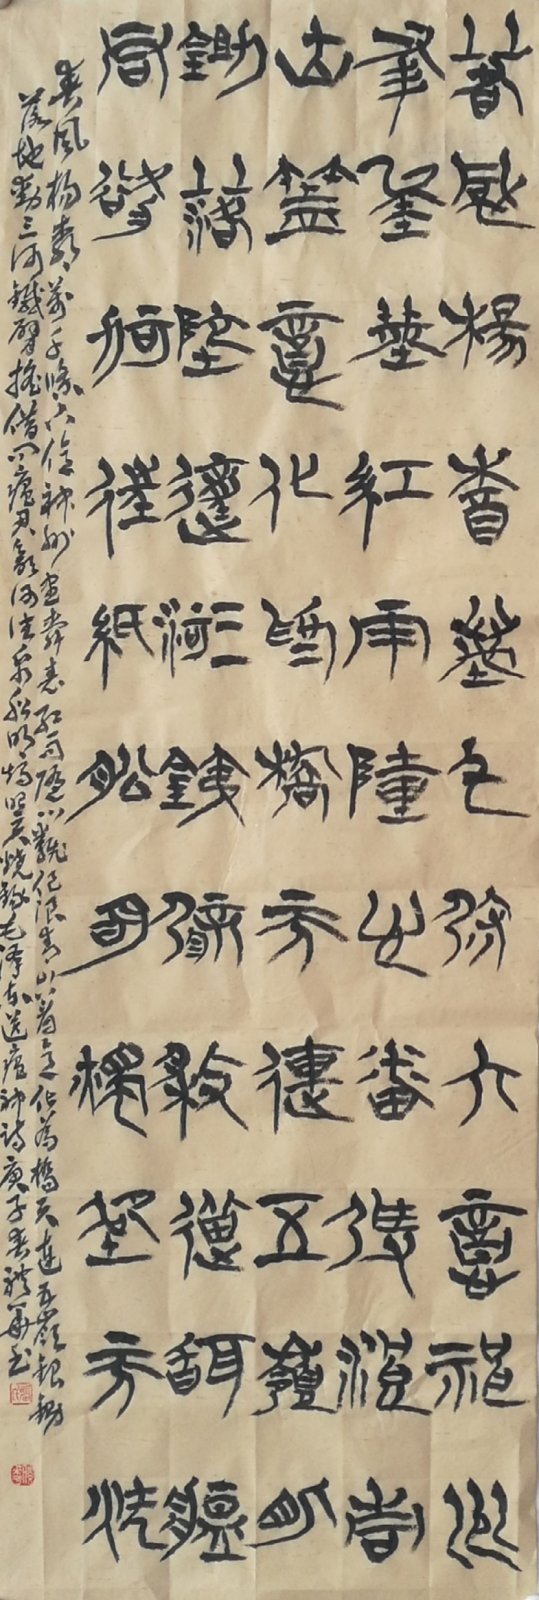 春風楊柳萬千條六億神州
盡舜堯紅雨隨心翻作浪青
山著意化為橋天連五嶺銀
鋤落地動三河鐵臂搖借問瘟
君欲何往紙船明燭照天燒
春風楊柳萬千條六億神州盡舜堯紅雨隨心翻作浪青山着意化為橋天連五嶺銀鋤
落地動三河鐵臂搖借問瘟君欲何往紙船明燭照天燒毛澤東送瘟神詩庚子春華書